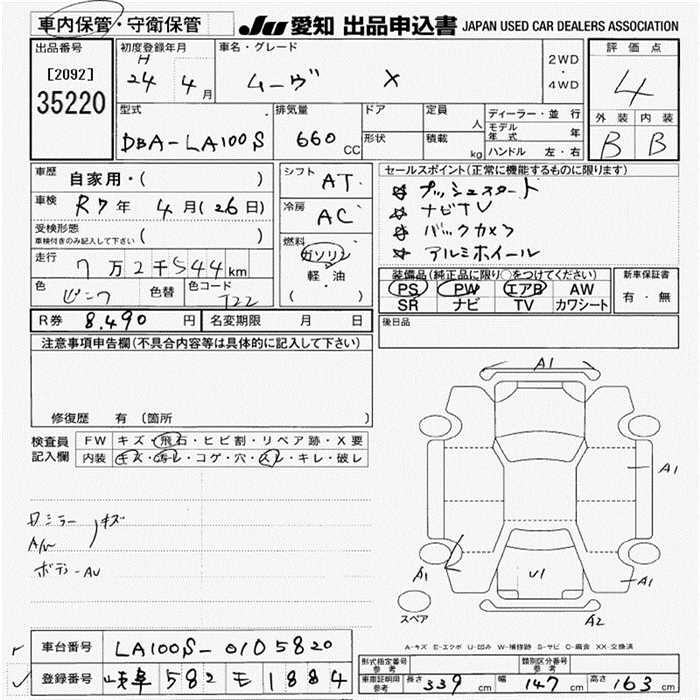 車内保管・守衛保管
JU 愛知 出品申込書 JAPAN USED CAR DEALERS ASSOCIATION
出品番号
[2092]
35220
初度登録年月
H
24 4 月
車名・グレード
ムーヴ X
2WD
・
4WD
評価点
4
外装 内装
B B
型式
DBA-LA100S
排気量
660 CC
ドア
形状
定員
人
積載
kg
ディーラー・並行
モデル年式 年
ハンドル 左・右
車歴
自家用・( )
車検
R7年 4月(26日)
受検形態
車検付きのみ記入して下さい ( )
走行
7万2千544km
色
ピンク
色替
色コード
T22
シフト
AT
冷房
AC
燃料
ガソリン
軽・油
( )
セールスポイント(正常に機能するものに限ります)
☆ プッシュスタート
☆ ナビTV
☆ バックカメラ
☆ アルミホイール
装備品(純正品に限り○をつけてください)
PS PW エアB AW
SR ナビ TV カワシート
新車保証書
有・無
R券 8,490 円
名変期限 月 日
後日品
注意事項申告欄(不具合内容等は具体的に記入して下さい)
修復歴 有 (箇所 )
検査員
記入欄
FW キズ・飛石・ヒビ割・リペア跡・X要
内装 キズ・汚レ・コゲ・穴・スレ・キレ・破レ
ロミラー
A/W
キズ
ボディーAU
A1
A1
A1
U1
A1
A2
スペア
A-キズ E-エクボ U-凹み W-補修跡 S-サビ C-腐食 XX-交換済
車台番号 LA100S-0105820
登録番号 岐阜 582 モ 1884
形式指定番号
参考
類別区分番号
参考
車庫証明用
参考
長さ 339 cm
幅 147 cm
高さ 163 cm